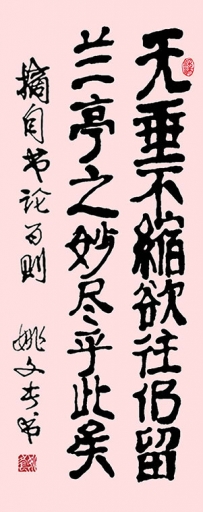 无垂不縮欲往仍留
兰亭之妙尽乎此矣
摘自书论百则
姚文奎书